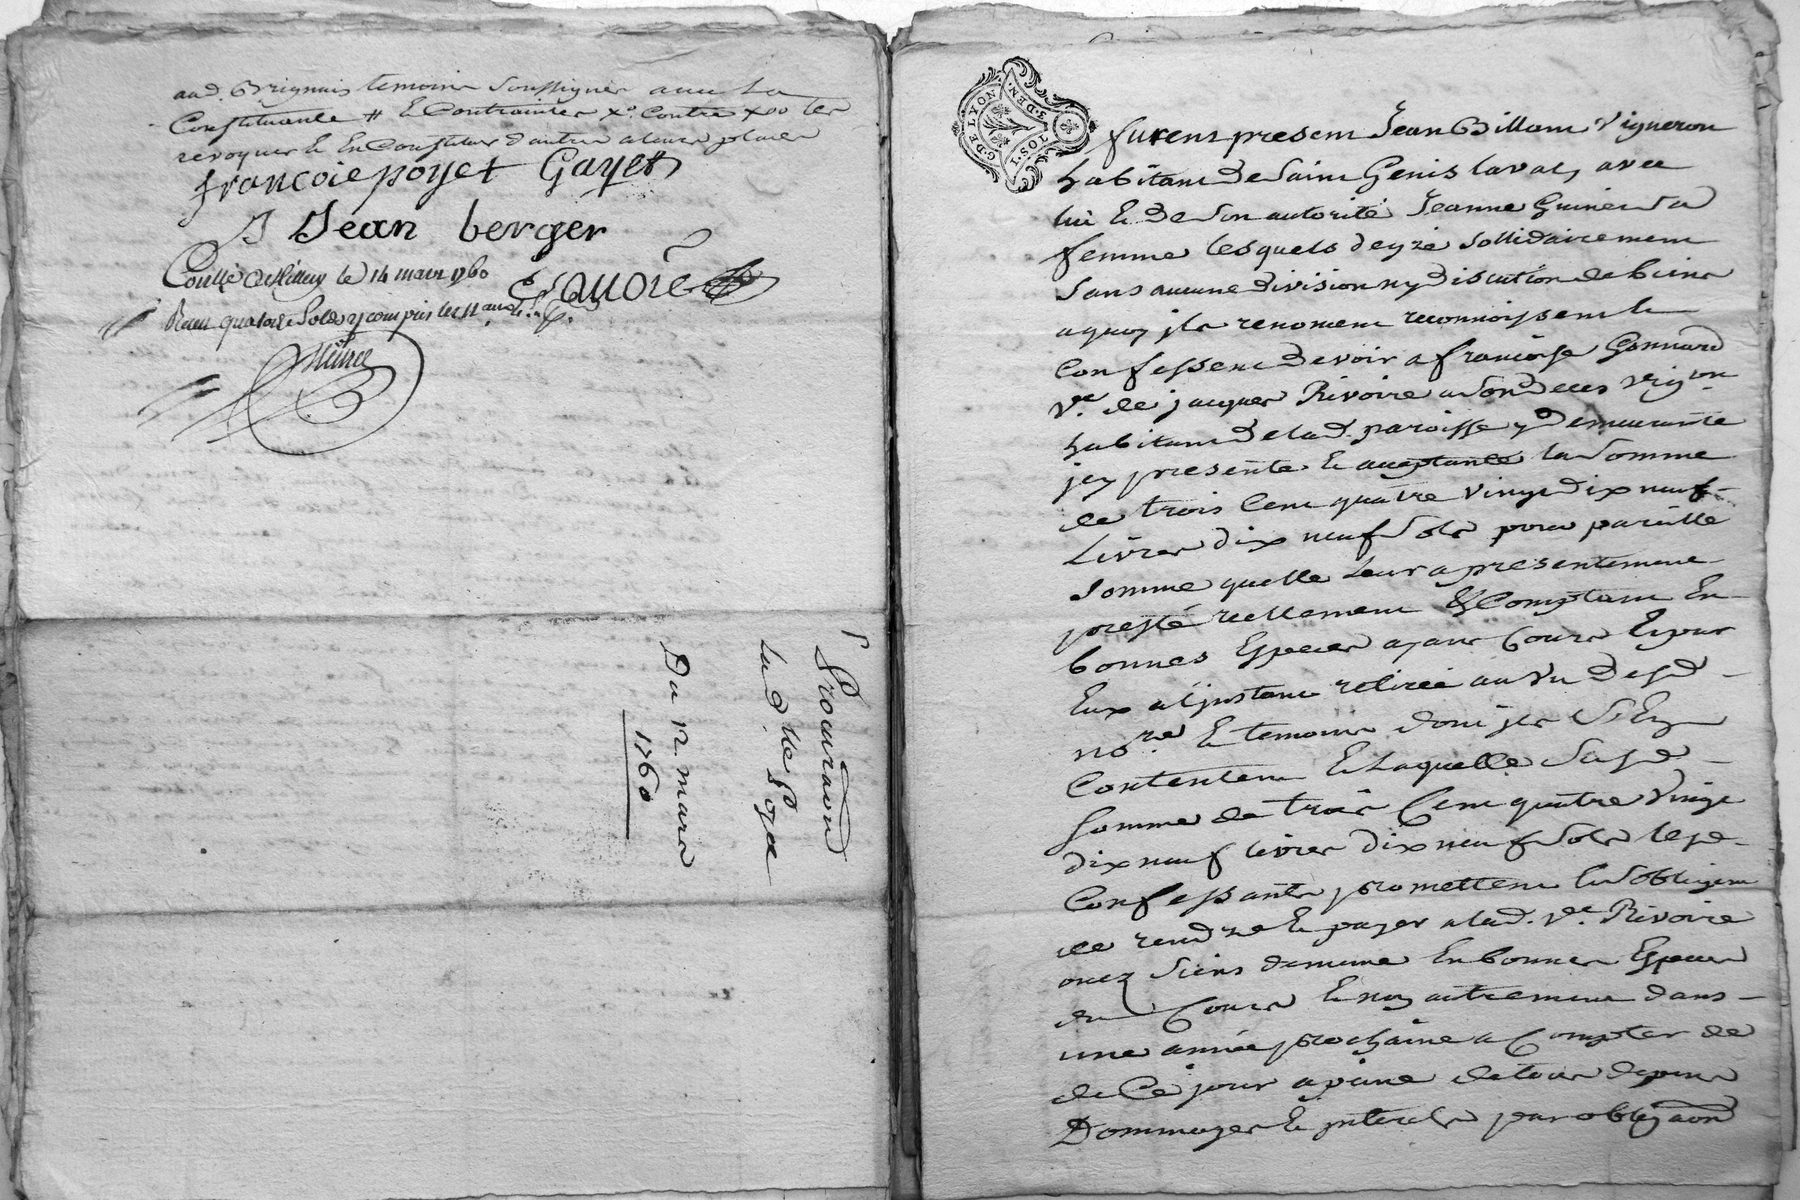 aud. Brignais temoins soussignes avec La
Constituante # Et Contraintes
revoquer Et En Constituer d'autres a leurs places
francoise poyet Gayet
J Jean berger
Collé a Millery le 14 mars 1760
Recu quatorze Sols y compris les
Procuraõn
Lad. lle Poyet
Du 12 mars
1760
G. DE LYON
1. SOL. 4. DEN.
furent present Jean Billiam vigneron
habitant de Saint Genis laval, avec
lui Et De Son autorité Jeanne Guinet Sa
femme lesquels de gré Sollidairement
Sans aucune division ny discution de biens
a quoy ils renoncent reconnoissent Et
Confessent devoir a francoise Gonnard
Ve. de jacques Rivoire a Son deces vigon
habitant de lad. paroisse y demeurante
icy presente Et acceptante la Somme
de trois Cent quatre vingt dix neuf
Livres dix neuf Sols pour pareille
Somme quelle Leur a presentement
presté reellement Et Comptant En
bonnes Especes ayant Cours Et par
Eux a l'instant retirée au vu Desd
nore Et temoins dont ils S'En
Contentent Et Laquelle Susd
Somme de trois Cent quatre vingt
dix neuf livres dix neuf Sols lesd
Confessants promettent Et S'obligent
de rendre Et payer a lad. Ve. Rivoire
ou ez Siens de meme En bonnes Especes
du Cours Et non autrement dans
une année prochaine a Compter de
de Ce jour a peine de tous depens
Dommages Et interets par obligaõn